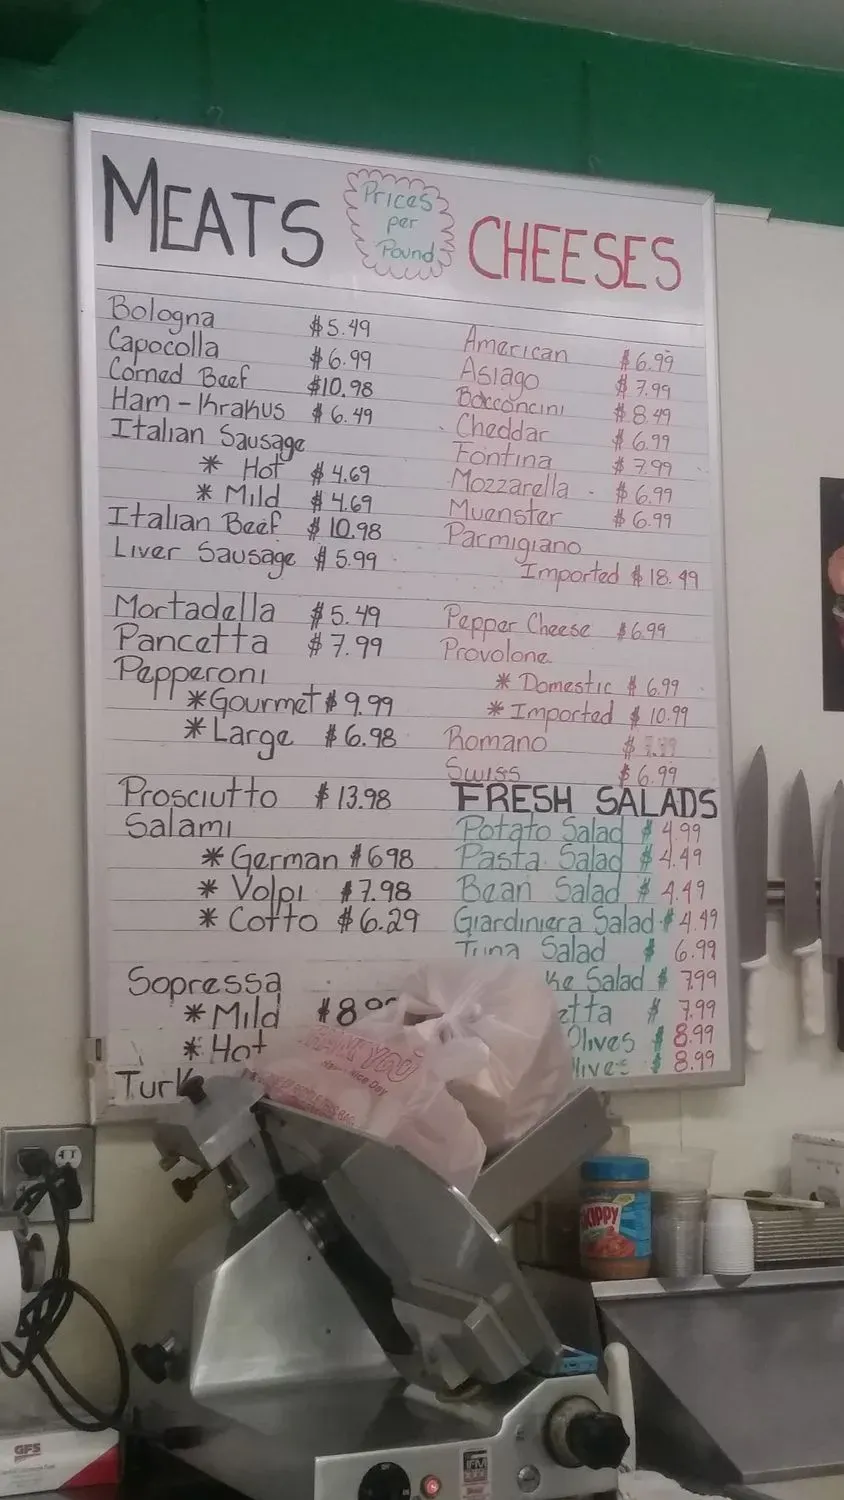 MEATS
Prices
per
Pound
CHEESES
Bologna $5.49
Capocolla $6.99
Corned Beef $10.98
Ham-Krakus $6.49
Italian Sausage
* Hot $4.69
* Mild $4.69
Italian Beef $10.98
Liver Sausage $5.99
Mortadella $5.49
Pancetta $7.99
Pepperoni
*Gourmet $9.99
*Large $6.98
Prosciutto $13.98
Salami
*German $6.98
*Volpi $7.98
*Cotto $6.29
Sopressa
*Mild
*Hot
American $6.99
Asiago $7.99
Bocconcini $8.49
Cheddar $6.99
Fontina $7.99
Mozzarella $6.99
Muenster $6.99
Parmigiano
Imported $18.49
Pepper Cheese $6.99
Provolone
* Domestic $6.99
* Imported $10.99
Romano $
Swiss $6.99
FRESH SALADS
Potato Salad $4.99
Pasta Salad $4.49
Bean Salad $4.49
Giardiniera Salad $4.49
Tuna Salad $6.99
Salad $7.99
$7.99
Olives $8.99
$8.99
THANK YOU
Have a Nice Day
SKIPPY
GFS